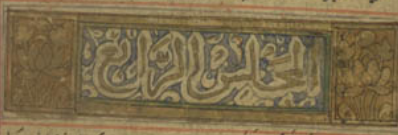 المجلس الرابع